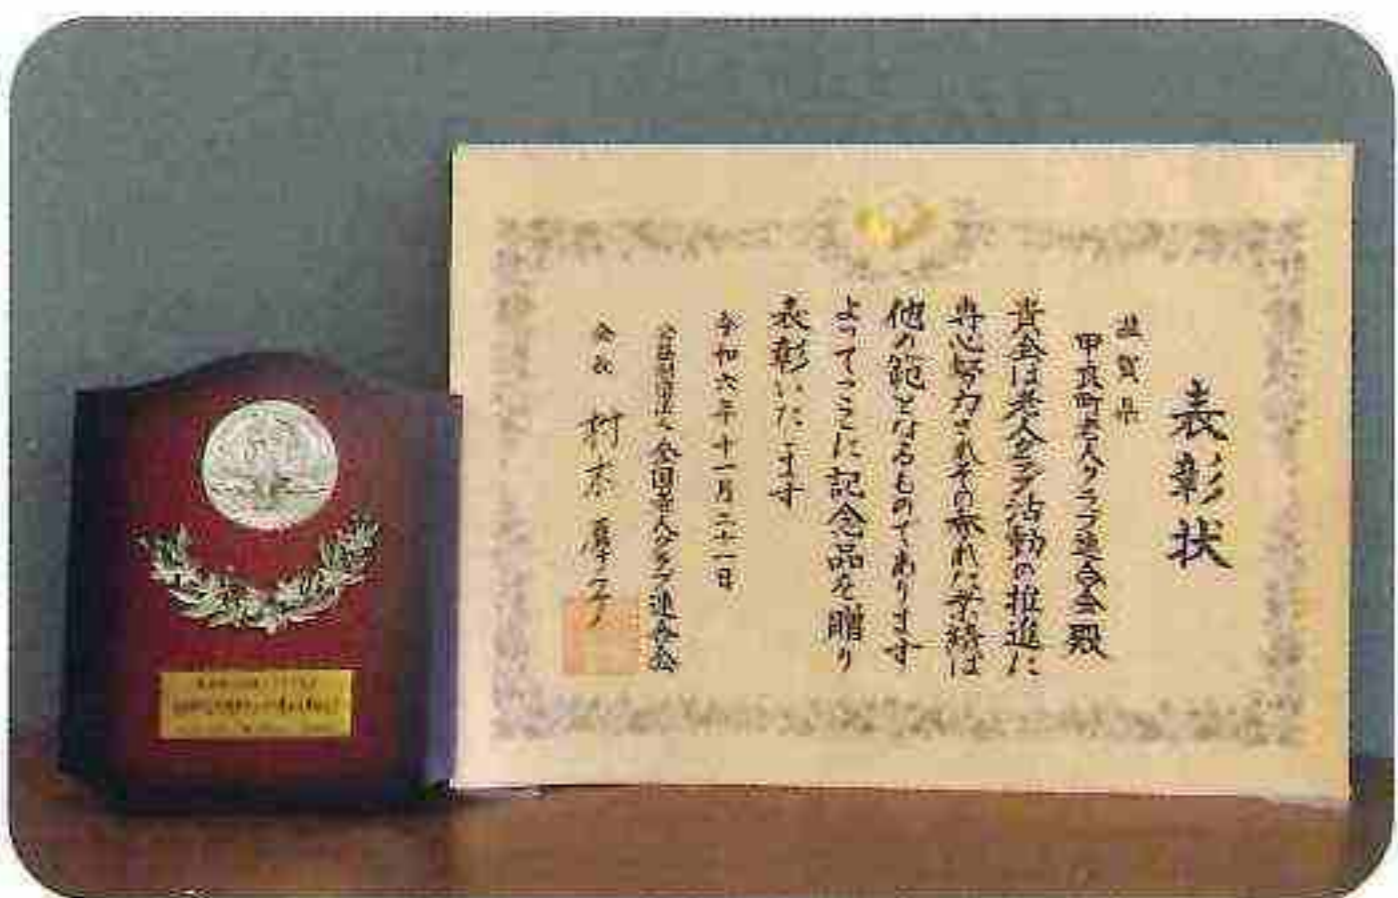 表彰状
滋賀県
甲良町老人クラブ連合会殿
貴会は老人クラブ活動の推進に
専心努力されその優れた業績は
他の範となるものであります
よってここに記念品を贈り
表彰いたします
令和六年十一月二十一日
公益財団法人全国老人クラブ連合会
会長 村木厚子